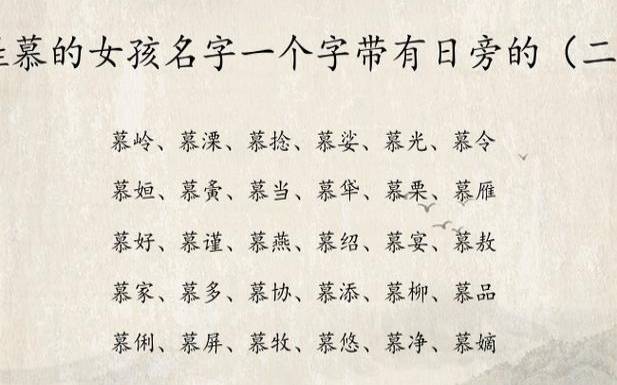 慕的女孩名字一个字带有日旁的（二
慕岭、慕溧、慕捻、慕娑、慕光、慕令
慕姮、慕夤、慕当、慕牮、慕栗、慕雁
慕好、慕谨、慕燕、慕绍、慕宴、慕敖
慕家、慕多、慕协、慕添、慕柳、慕品
慕俐、慕屏、慕牧、慕悠、慕净、慕嫡